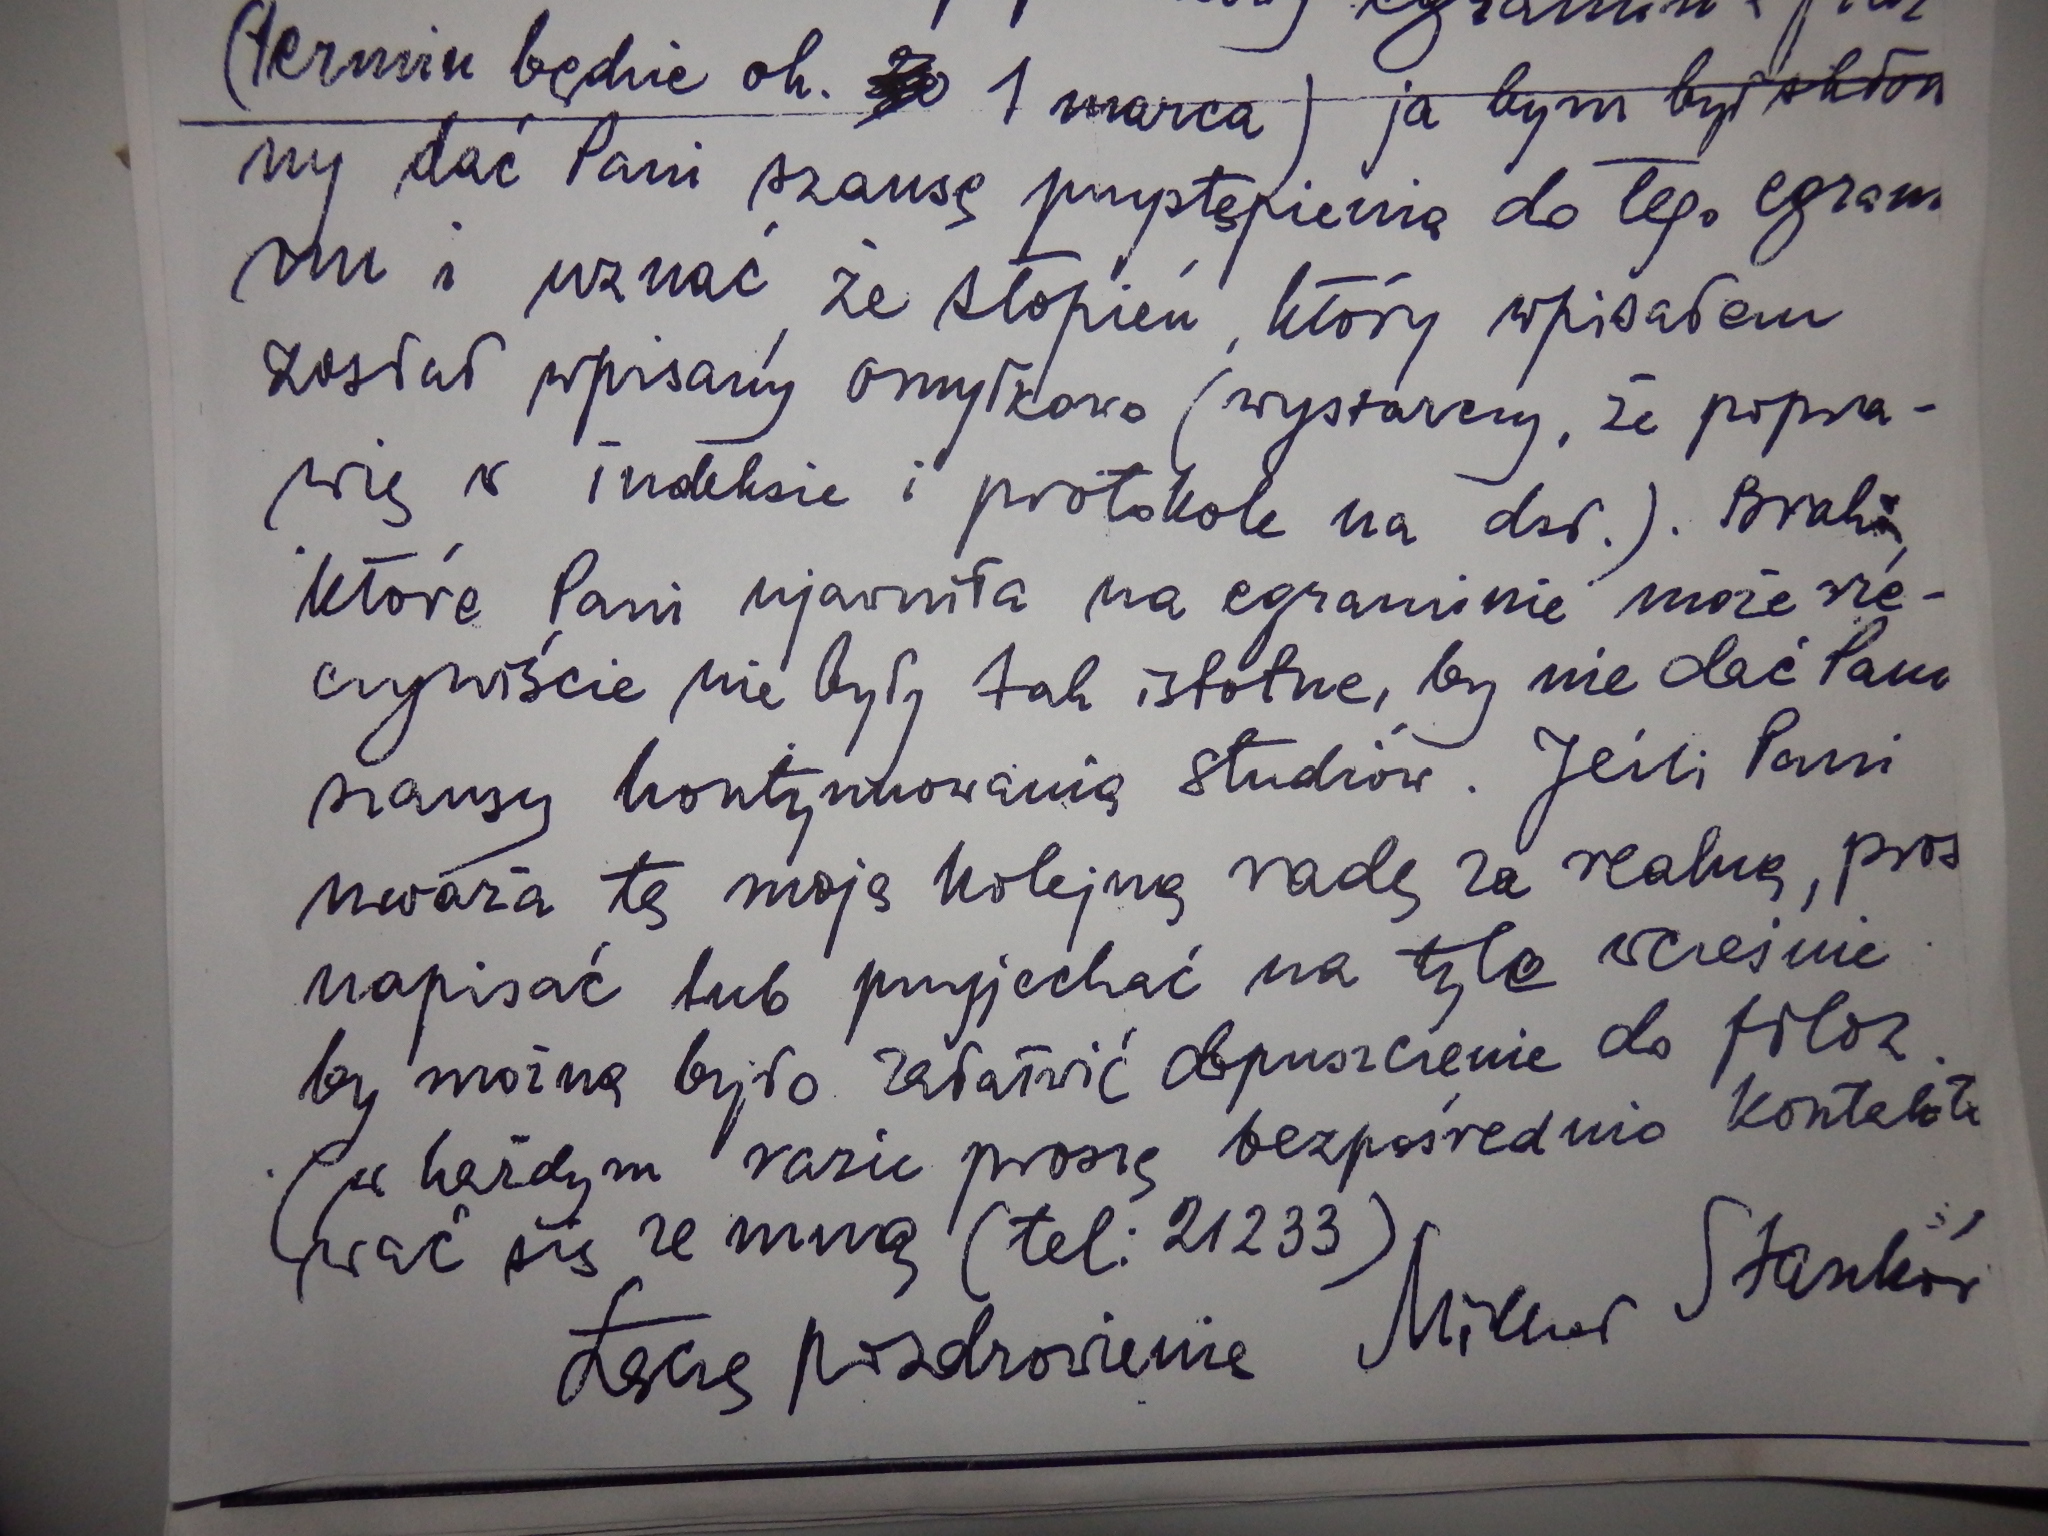 egzaminu
(termin będzie ok. 1 marca) ja bym był skłon
ny dać Pani szansę przystąpienia do tego egzam
inu i uznać, że stopień, który wpisałem
został wpisany omyłkowo (wystarczy, że popra-
wię w indeksie i protokole na dst.). Braki,
które Pani ujawniła na egzaminie może rze-
czywiście nie były tak istotne, by nie dać Pani
szansy kontynuowania studiów. Jeśli Pani
uważa tę moją kolejną radę za realną, pros
napisać lub przyjechać na tyle wcześnie
by można było załatwić dopuszczenie do filoz.
(w każdym razie proszę bezpośrednio kontakto
wać się ze mną (tel: 21233)
Łączę pozdrowienia